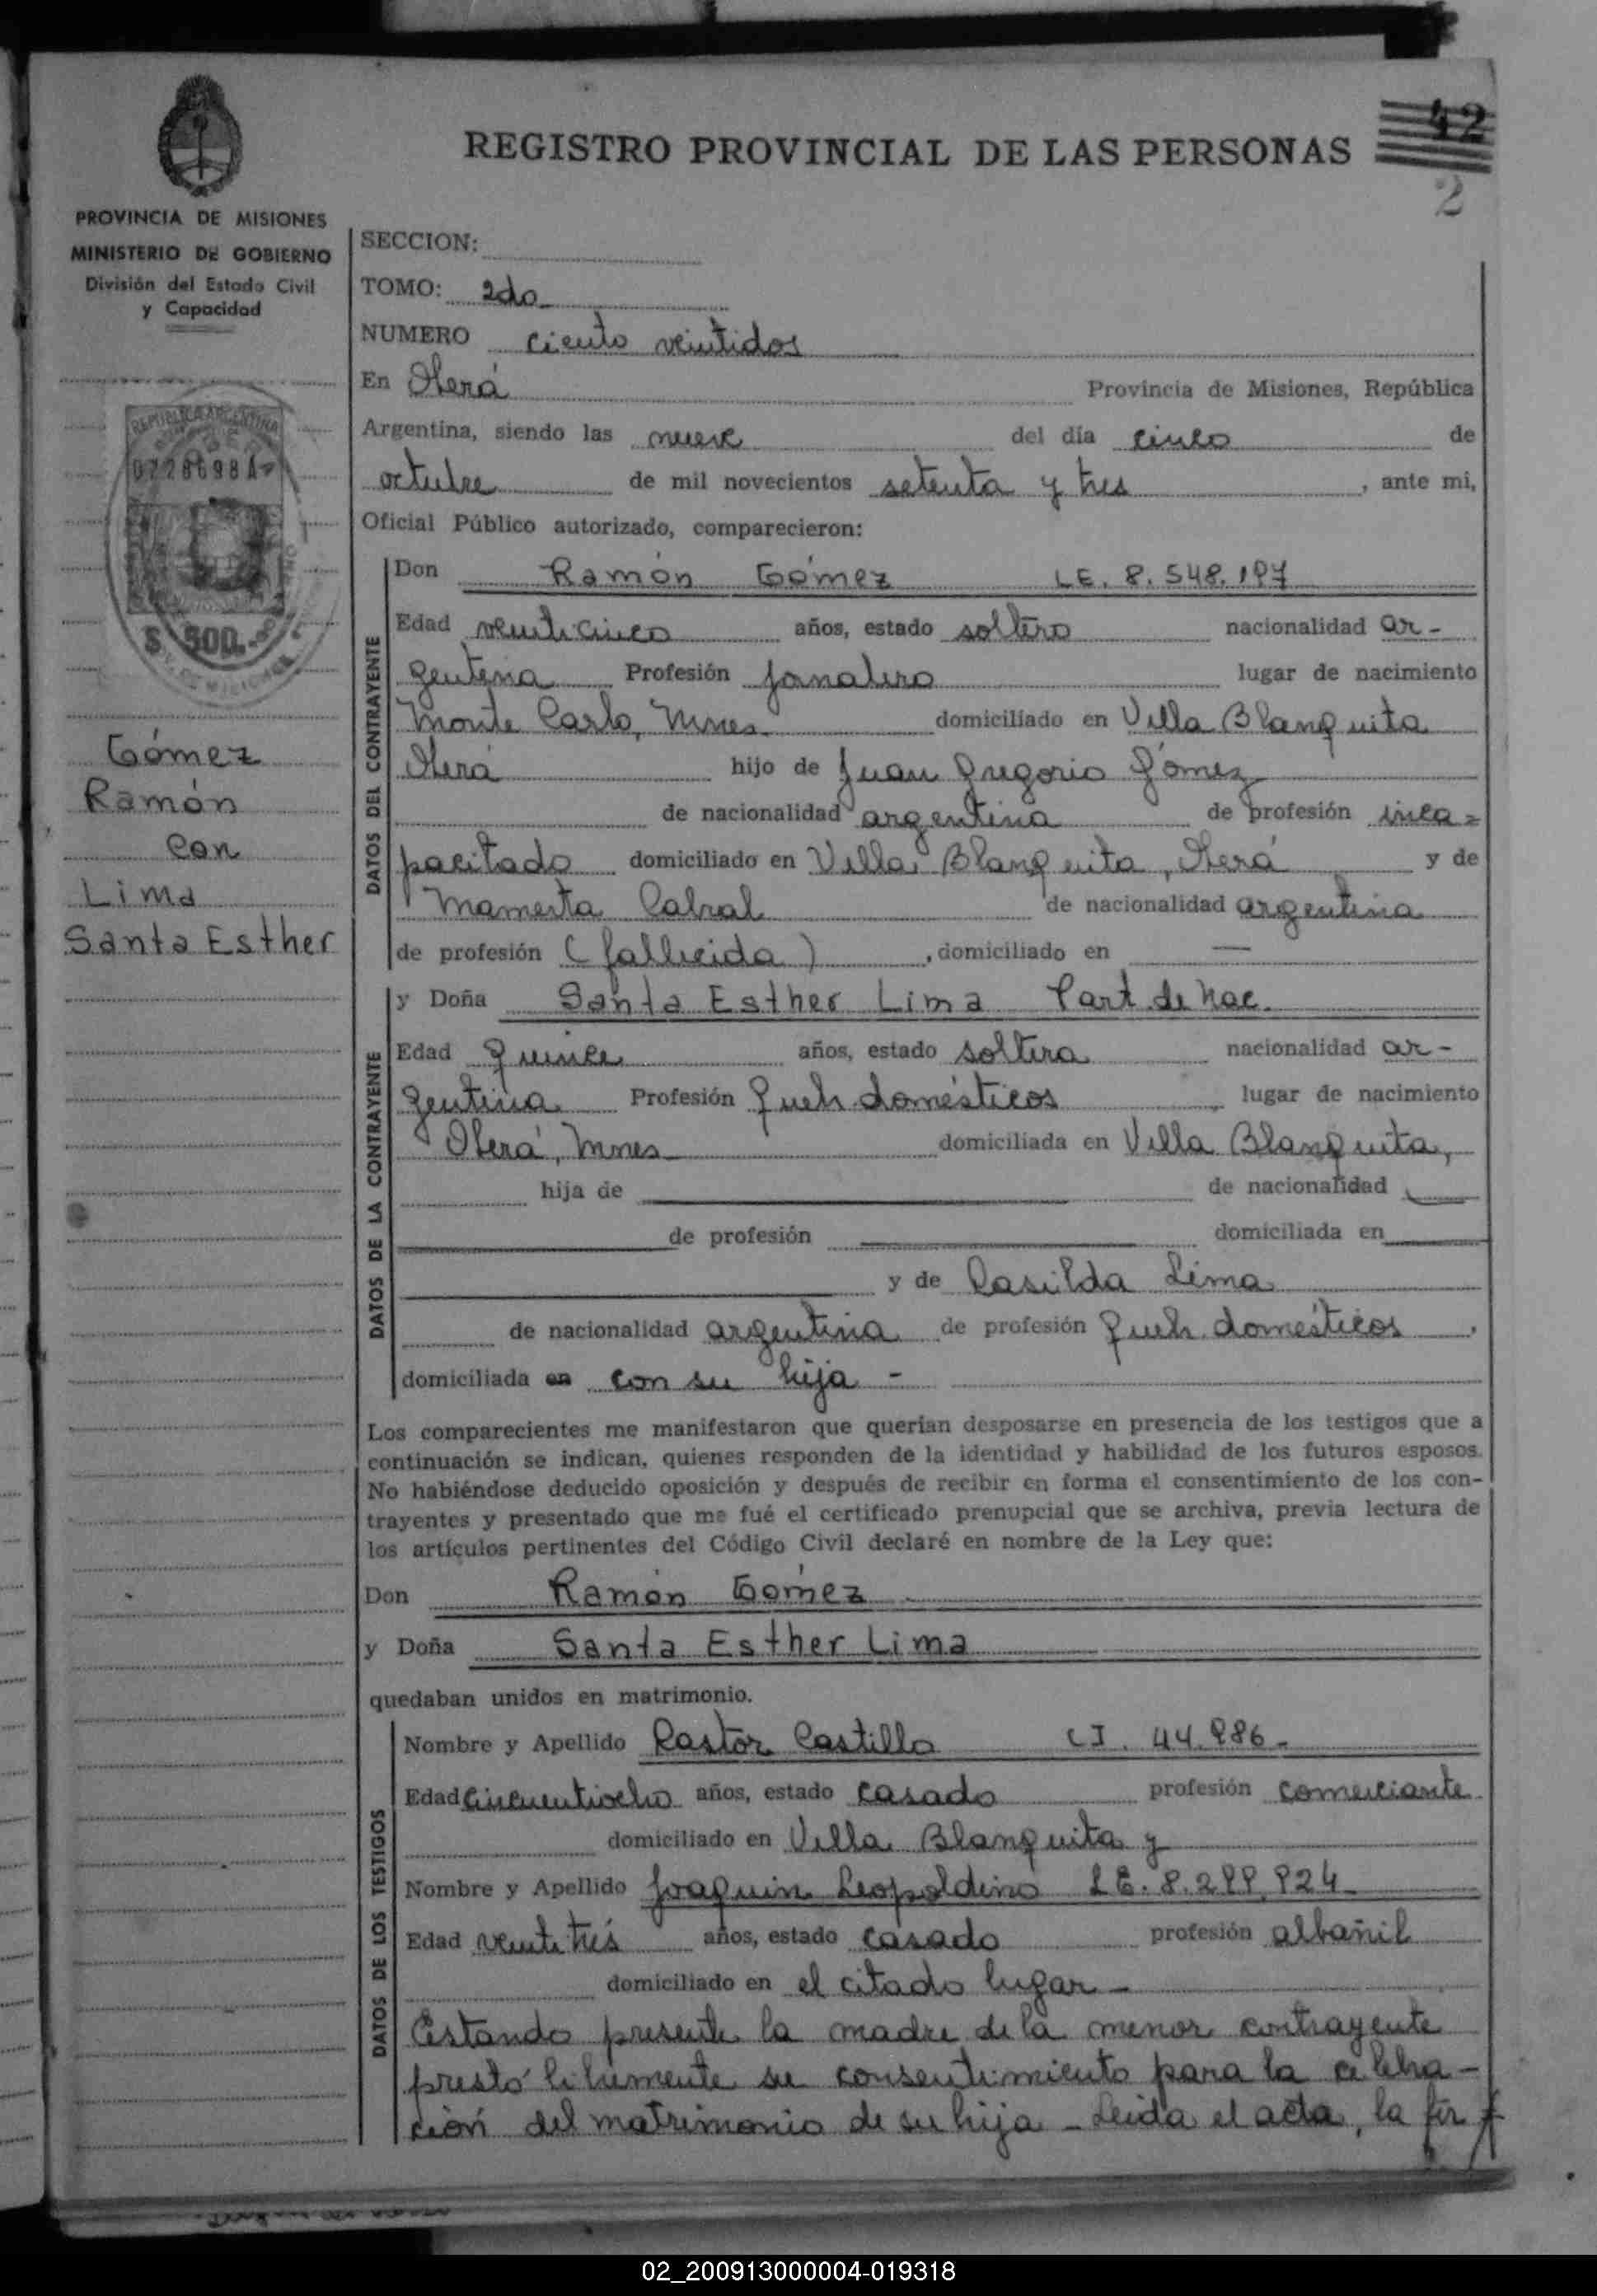 42
REGISTRO PROVINCIAL DE LAS PERSONAS
2
PROVINCIA DE MISIONES
MINISTERIO DE GOBIERNO
División del Estado Civil
y Capacidad
REPUBLICA ARGENTINA
$ 500.-
Gómez
Ramón
con
Lima
Santa Esther
SECCION:
TOMO: 2do
NUMERO ciento veintidos
En Oberá Provincia de Misiones, República
Argentina, siendo las nueve del día cinco de
octubre de mil novecientos setenta y tres, ante mi,
Oficial Público autorizado, comparecieron:
DATOS DEL CONTRAYENTE
Don Ramón Gómez LE. 8.548.197
Edad veinticinco años, estado soltero nacionalidad ar-
gentina Profesión Jornalero lugar de nacimiento
Monte Carlo, Mnes domiciliado en Villa Blanquita
Oberá hijo de Juan Gregorio Gómez
de nacionalidad argentina de profesión inca=
pacitado domiciliado en Villa Blanquita, Oberá y de
Mamerta Cabral de nacionalidad argentina
de profesión (fallecida), domiciliado en —
DATOS DE LA CONTRAYENTE
y Doña Santa Esther Lima Part. de Nac.
Edad quince años, estado soltera nacionalidad ar-
gentina Profesión queh. domésticos, lugar de nacimiento
Oberá, Mnes domiciliada en Villa Blanquita,
hija de de nacionalidad
de profesión domiciliada en
y de Casilda Lima
de nacionalidad argentina de profesión queh. domésticos,
domiciliada en con su hija -
Los comparecientes me manifestaron que querían desposarse en presencia de los testigos que a
continuación se indican, quienes responden de la identidad y habilidad de los futuros esposos.
No habiéndose deducido oposición y después de recibir en forma el consentimiento de los con-
trayentes y presentado que me fué el certificado prenupcial que se archiva, previa lectura de
los artículos pertinentes del Código Civil declaré en nombre de la Ley que:
Don Ramón Gómez
y Doña Santa Esther Lima
quedaban unidos en matrimonio.
DATOS DE LOS TESTIGOS
Nombre y Apellido Pastor Castillo CI. 44.986-
Edad cincuentiocho años, estado casado profesión comerciante
domiciliado en Villa Blanquita y
Nombre y Apellido Joaquin Leopoldino LE. 8.299.924
Edad veintitrés años, estado casado profesión albañil
domiciliado en el citado lugar -
Estando presente la madre de la menor contrayente
prestó libremente su consentimiento para la celebra-
ción del matrimonio de su hija - Leida el acta, la fir
02_200913000004-019318